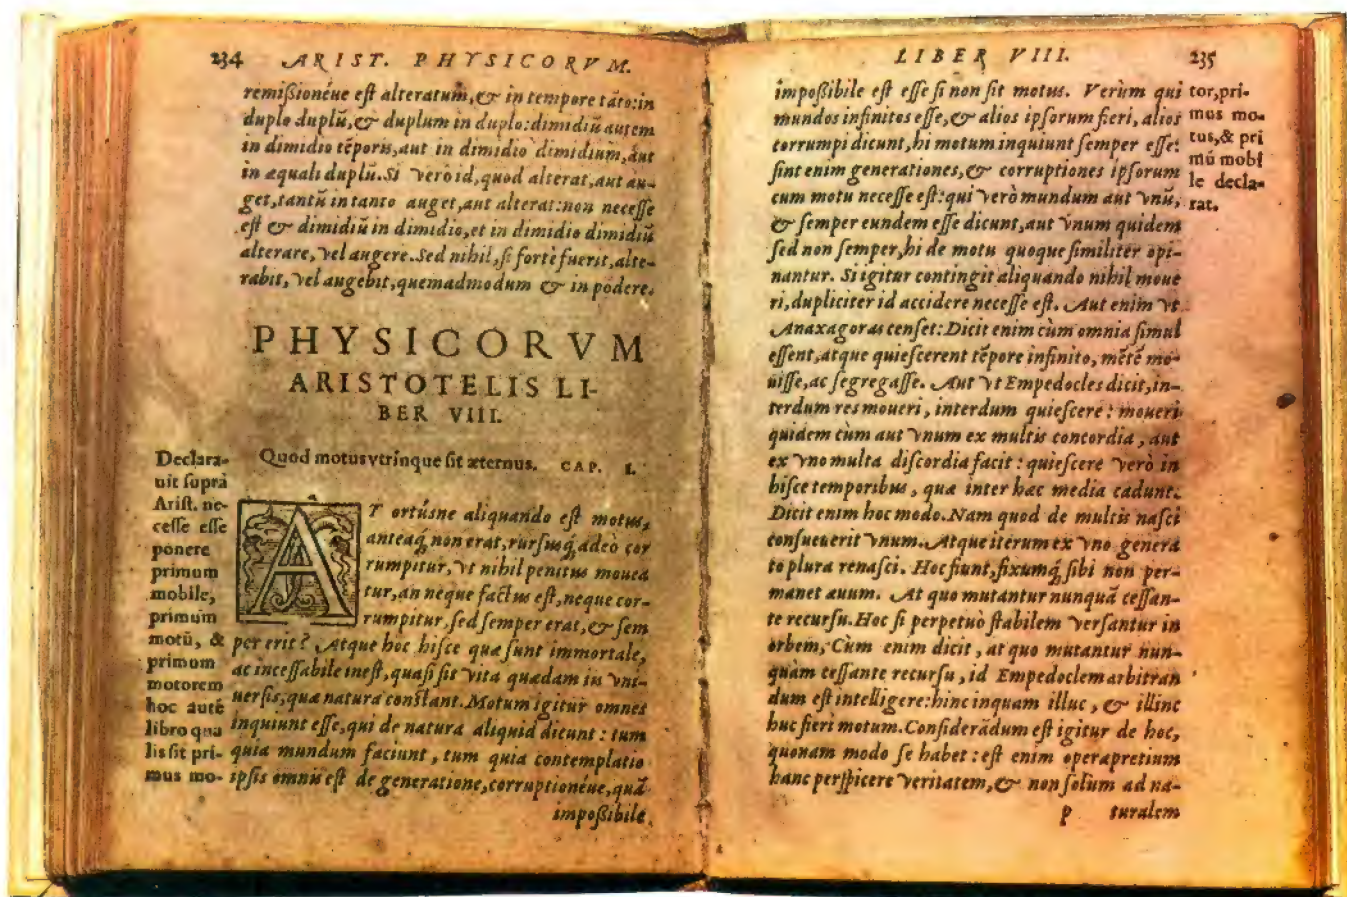 234 ARIST. PHYSICORVM.
remißionéue est alteratum, & in tempore tãto: in
duplo duplũ, & duplum in duplo: dimidiũ autem
in dimidio tẽporis, aut in dimidio dimidium, aut
in æquali duplũ. Si verò id, quod alterat, aut au-
get, tantũ in tanto auget, aut alterat: non necesse
est & dimidiũ in dimidio, et in dimidio dimidiũ
alterare, vel augere. Sed nihil, si fortè fuerit, alte-
rabit, vel augebit, quemadmodum & in põdere.
PHYSICORVM
ARISTOTELIS LI-
BER VIII.
Quod motus vtrinque sit æternus. CAP. I.
AT ortúsne aliquando est motus,
anteaq́; non erat, rursusq́; adeò cor
rumpitur, vt nihil penitus mouea
tur, an neque factus est, neque cor-
rumpitur, sed semper erat, & sem
per erit? Atque hoc hisce quæ sunt immortale,
ac incessabile inest, quasi sit vita quædam iis vni-
uersis, quæ natura constant. Motum igitur omnes
inquiunt esse, qui de natura aliquid dicunt: tum
quia mundum faciunt, tum quia contemplatio
ipsis omnis est de generatione, corruptionéue, quã
impoßibile
Declara-
uit suprà
Arist. ne-
cesse esse
ponere
primum
mobile,
primum
motũ, &
primum
motorem
hoc autẽ
libro qua
lis sit pri-
mus mo-
LIBER VIII. 235
impoßibile est esse si non sit motus. Verùm qui
mundos infinitos esse, & alios ipsorum fieri, alios
corrumpi dicunt, hi motum inquiunt semper esse:
sint enim generationes, & corruptiones ipsorum
cum motu necesse est: qui verò mundum aut vnũ,
& semper eundem esse dicunt, aut vnum quidem
sed non semper, hi de motu quoque similiter opi-
nantur. Si igitur contingit aliquando nihil moue
ri, dupliciter id accidere necesse est. Aut enim vt
Anaxagoras censet: Dicit enim cùm omnia simul
essent, atque quiescerent tẽpore infinito, mẽtẽ mo-
uisse, ac segregasse. Aut vt Empedocles dicit, in-
terdum res moueri, interdum quiescere: moueri
quidem cùm aut vnum ex multis concordia, aut
ex vno multa discordia facit: quiescere verò in
hisce temporibus, quæ inter hæc media cadunt.
Dicit enim hoc modo. Nam quod de multis nasci
consueuerit vnum. Atque iterum ex vno genera
to plura renasci. Hoc fiunt, fixumq́; sibi non per-
manet æuum. At quo mutantur nunquã cessan-
te recursu. Hoc si perpetuò stabilem versantur in
orbem, Cùm enim dicit, at quo mutantur nun-
quàm cessante recursu, id Empedoclem arbitran
dum est intelligere: hinc inquam illuc, & illinc
huc fieri motum. Considerãdum est igitur de hoc,
quonam modo se habet: est enim operæpretium
hanc perspicere veritatem, & non solum ad na-
p turalem
tor, pri-
mus mo-
tus, & pri
mũ mobi
le decla-
rat.